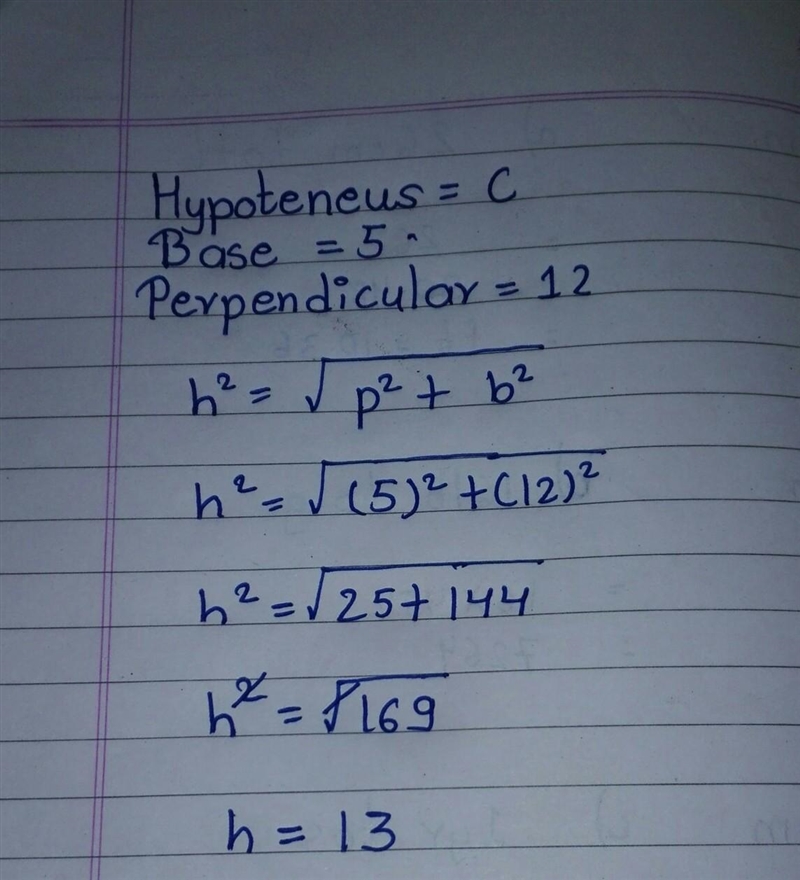 Hypoteneus = C
Base = 5
Perpendicular = 12
h² = √(p² + b²)
h² = √((5)² + (12)²)
h² = √(25 + 144)
h² = √169
h = 13